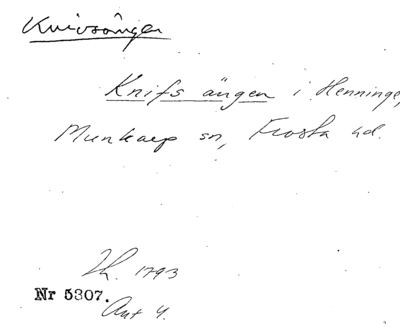 Knivsängen
Knifs ängen i Henninge,
Munkarp sn, Frosta hd.
Lh. 1793
Nr 5307.
Akt 4.